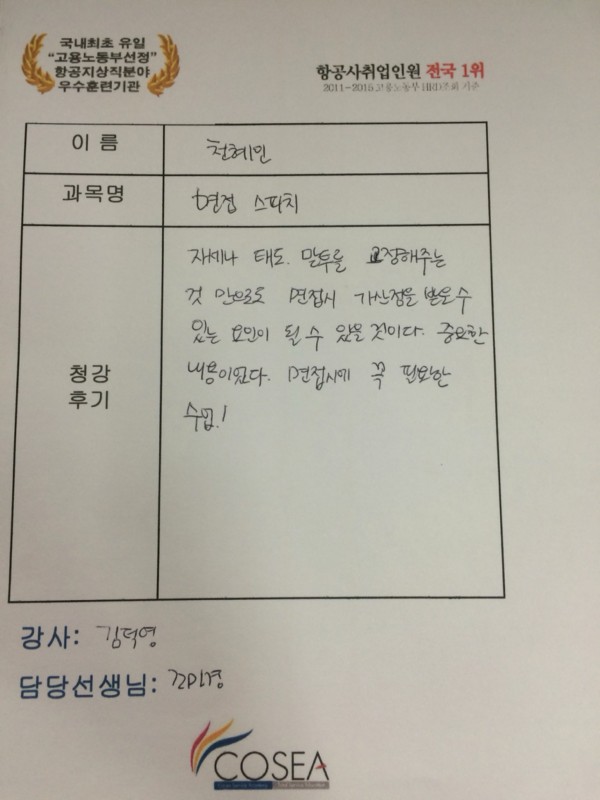 국내최초 유일
"고용노동부선정"
항공지상직분야
우수훈련기관
항공사취업인원 전국 1위
2011~2015 고용노동부 HRD조회 기준
이 름
천혜민
과목명
면접 스피치
청강
후기
자세나 태도. 말투를 교정해주는
것 만으로도 면접시 가산점을 받을수
있는 요인이 될 수 있을 것이다. 중요한
내용이었다. 면접시에 꼭 필요한
수업!
강사: 김덕영
담당선생님:
COSEA